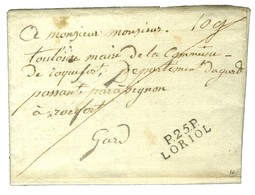 A monsieur monsieur
toulouse maire de la Commune
de roquefort, Departement du gard
passant par avignon
a rocfort
Gard
P.25.P.
LORIOL